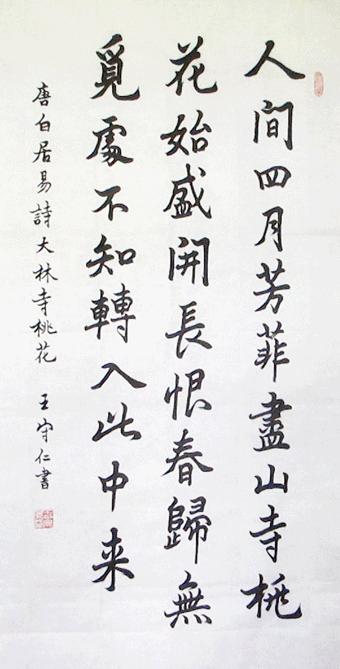 人間四月芳菲盡山寺桃
花始盛開長恨春歸無
覓處不知轉入此中来
唐白居易詩大林寺桃花 王守仁書